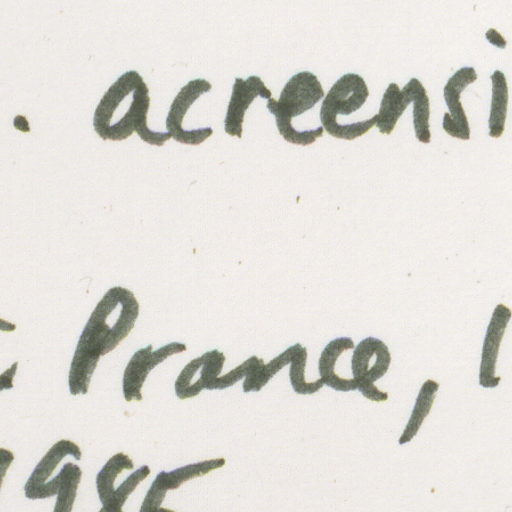 . acreensi
Prance, 1
1985